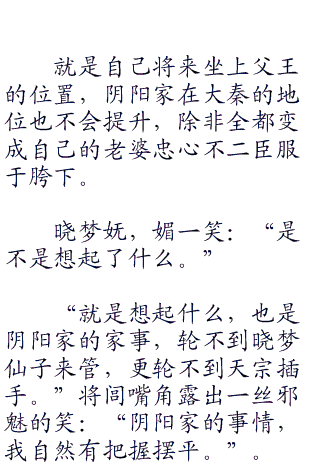 就是自己将来坐上父王
的位置，阴阳家在大秦的地
位也不会提升，除非全都变
成自己的老婆忠心不二臣服
于胯下。
晓梦妩，媚一笑：“是
不是想起了什么。”
“就是想起什么，也是
阴阳家的家事，轮不到晓梦
仙子来管，更轮不到天宗插
手。”将闾嘴角露出一丝邪
魅的笑：“阴阳家的事情，
我自然有把握摆平。”。